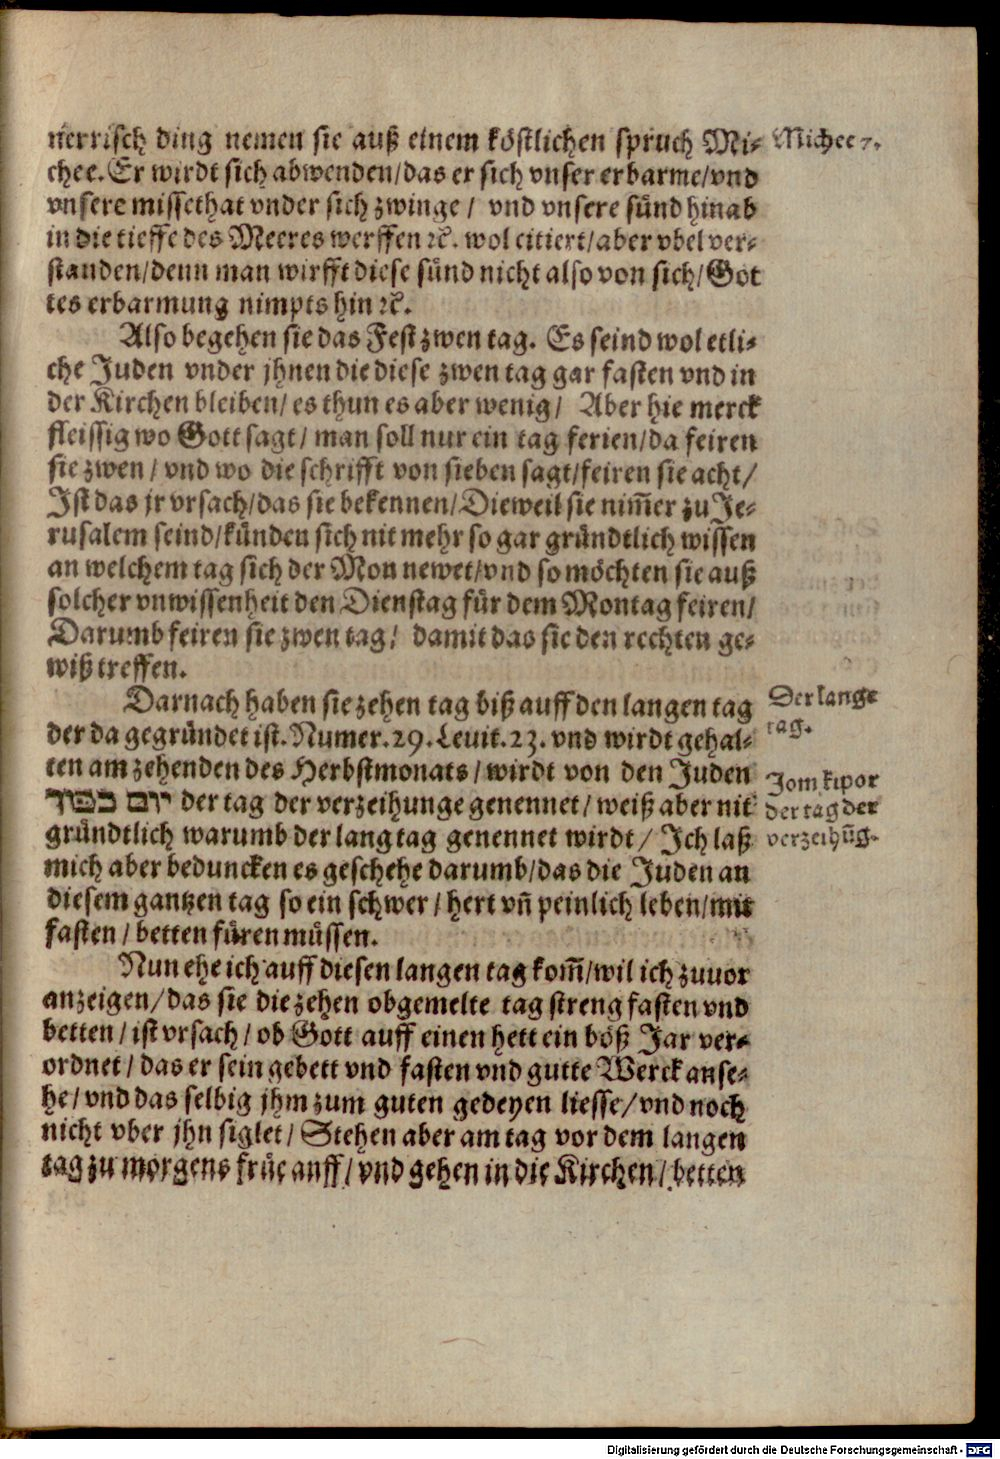 nerrisch ding nemen sie auß einem köstlichen spruch Mi-
chee. Er wirdt sich abwenden/das er sich vnser erbarme/vnd
vnsere missethat vnder sich zwinge / vnd vnsere sünd hinab
in die tieffe des Meeres werffen ꝛc. wol citiert/aber vbel ver-
standen/denn man wirfft diese sünd nicht also von sich/Got
tes erbarmung nimpts hin ꝛc.
Michee 7.
Also begehen sie das Fest zwen tag. Es seind wol etli-
che Juden vnder jhnen die diese zwen tag gar fasten vnd in
der Kirchen bleiben/ es thun es aber wenig/ Aber hie merck
fleissig wo Gott sagt/ man soll nur ein tag ferien/da feiren
sie zwen / vnd wo die schrifft von sieben sagt/feiren sie acht/
Ist das jr vrsach/das sie bekennen/Dieweil sie nim̄er zu Je-
rusalem seind/künden sich nit mehr so gar gründtlich wissen
an welchem tag sich der Mon newet/vnd so möchten sie auß
solcher vnwissenheit den Dienstag für dem Montag feiren/
Darumb feiren sie zwen tag/ damit das sie den rechten ge-
wiß treffen.
Darnach haben sie zehen tag biß auff den langen tag
der da gegründet ist. Numer. 29. Leuit. 23. vnd wirdt gehal-
ten am zehenden des Herbstmonats / wirdt von den Juden
יום כפור der tag der verzeihunge genennet/ weiß aber nit
gründtlich warumb der lang tag genennet wirdt / Ich laß
mich aber beduncken es geschehe darumb/das die Juden an
diesem gantzen tag so ein schwer / hert vn̄ peinlich leben/mit
fasten / betten füren müssen.
Der lange
tag.
Jom kipor
der tag der
verzeihūg.
Nun ehe ich auff diesen langen tag kom̄/wil ich zuuor
anzeigen/das sie die zehen obgemelte tag streng fasten vnd
betten / ist vrsach / ob Gott auff einen hett ein böß Jar ver-
ordnet / das er sein gebett vnd fasten vnd gutte Werck anse-
he/ vnd das selbig jhm zum guten gedeyen liesse/vnd noch
nicht vber jhn siglet/ Stehen aber am tag vor dem langen
tag zu morgens früe auff/ vnd gehen in die Kirchen/ betten
Digitalisierung gefördert durch die Deutsche Forschungsgemeinschaft - DFG